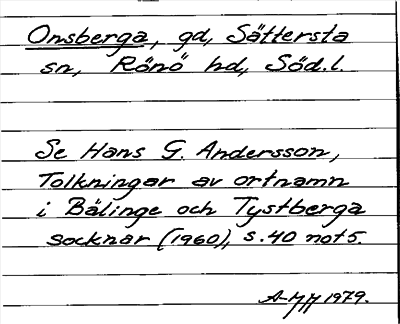 Onsberga, gd, Sättersta
sn, Rönö hd, Söd.l.
Se Hans G. Andersson,
Tolkningar av ortnamn
i Bälinge och Tystberga
socknar (1960), s.40 not 5.
1979.